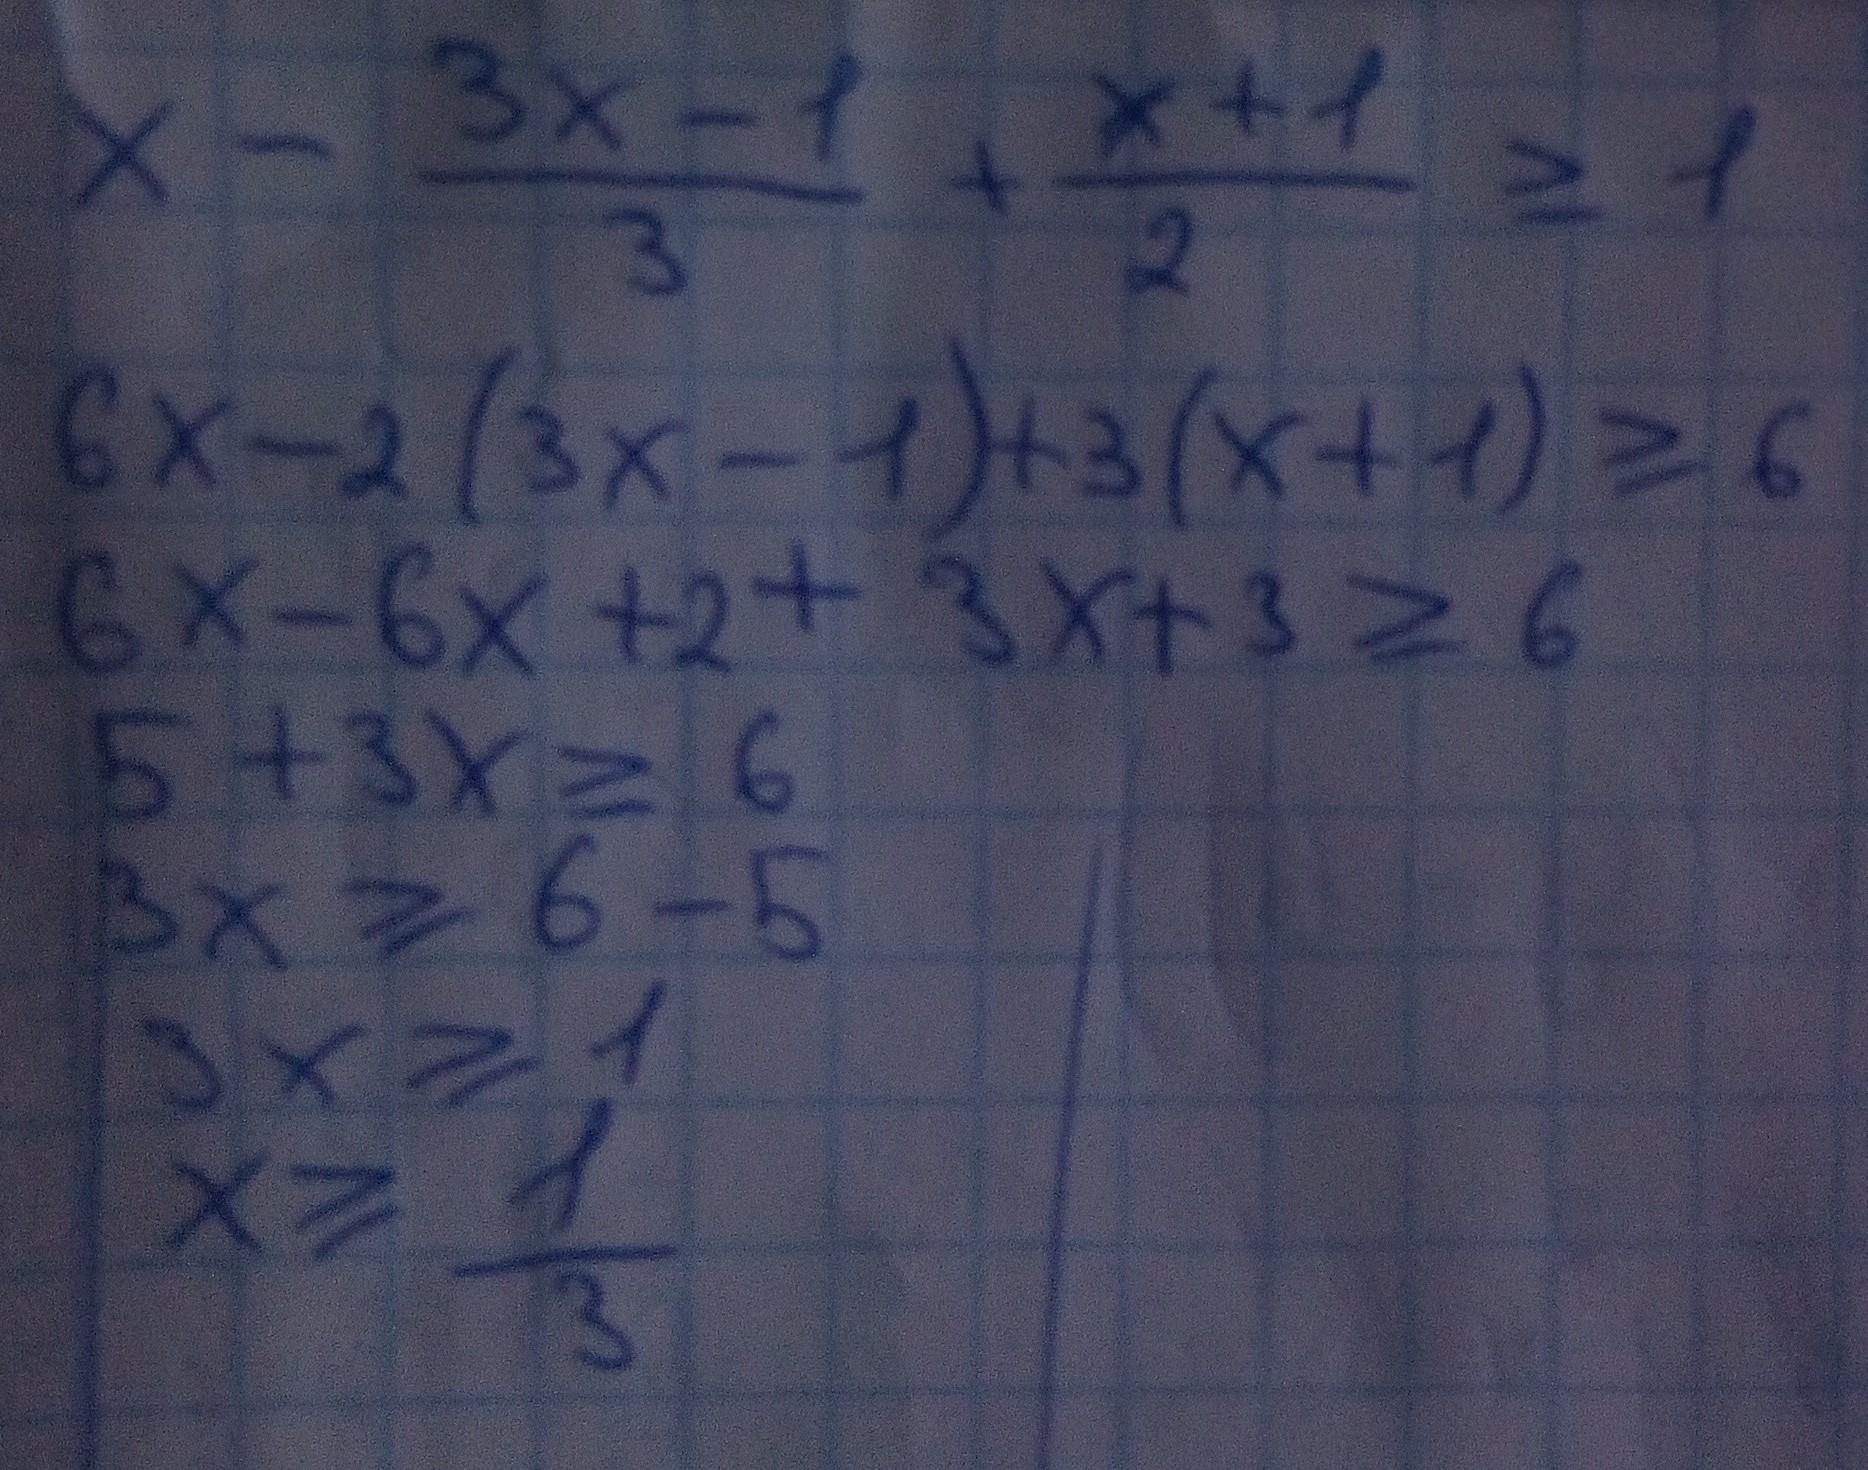 x - (3x - 1)/3 + (x + 1)/2 ≥ 1
6x - 2(3x - 1) + 3(x + 1) ≥ 6
6x - 6x + 2 + 3x + 3 ≥ 6
5 + 3x ≥ 6
3x ≥ 6 - 5
3x ≥ 1
x ≥ 1/3